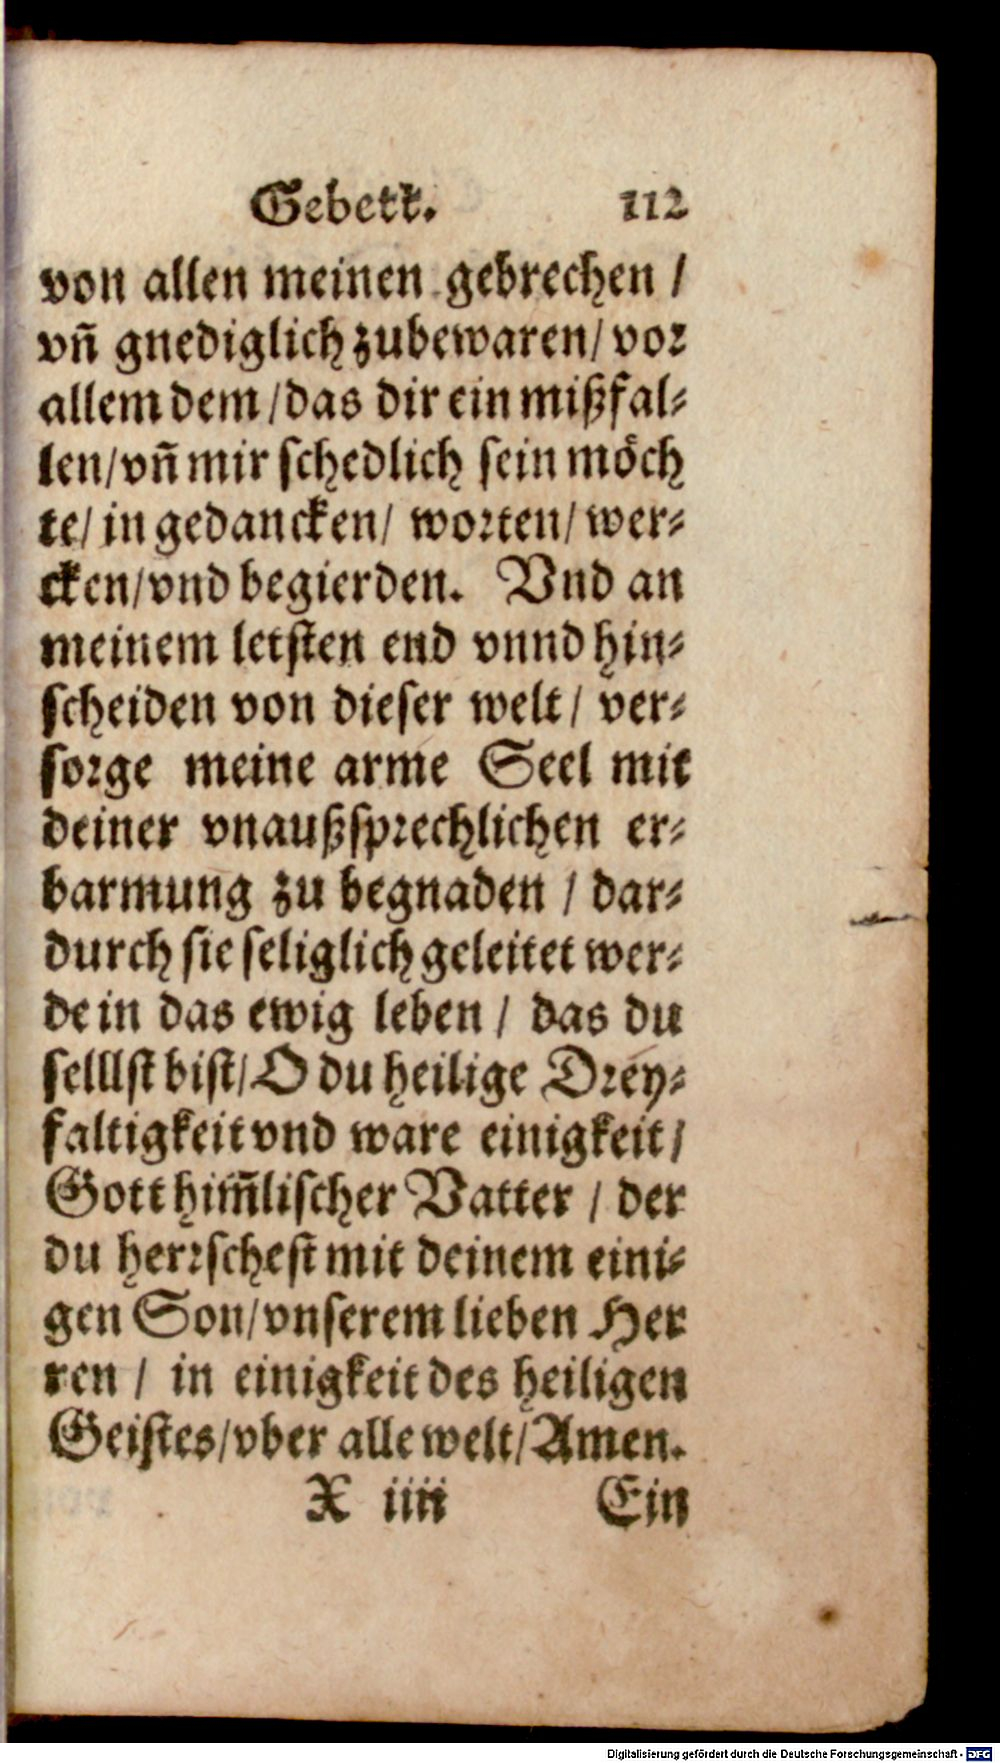 Gebett. 112
von allen meinen gebrechen /
vñ gnediglich zubewaren / vor
allem dem / das dir ein mißfal-
len / vñ mir schedlich sein möch
te / in gedancken / worten / wer-
cken / vnd begierden. Vnd an
meinem letsten end vnnd hin-
scheiden von dieser welt / ver-
sorge meine arme Seel mit
deiner vnaußsprechlichen er-
barmung zu begnaden / dar-
durch sie seliglich geleitet wer-
de in das ewig leben / das du
selllst bist / O du heilige Drey-
faltigkeit vnd ware einigkeit /
Gott him̃lischer Vatter / der
du herrschest mit deinem eini-
gen Son / vnserem lieben Her
ren / in einigkeit des heiligen
Geistes / vber alle welt / Amen.
X iiii Ein
Digitalisierung gefördert durch die Deutsche Forschungsgemeinschaft - DFG